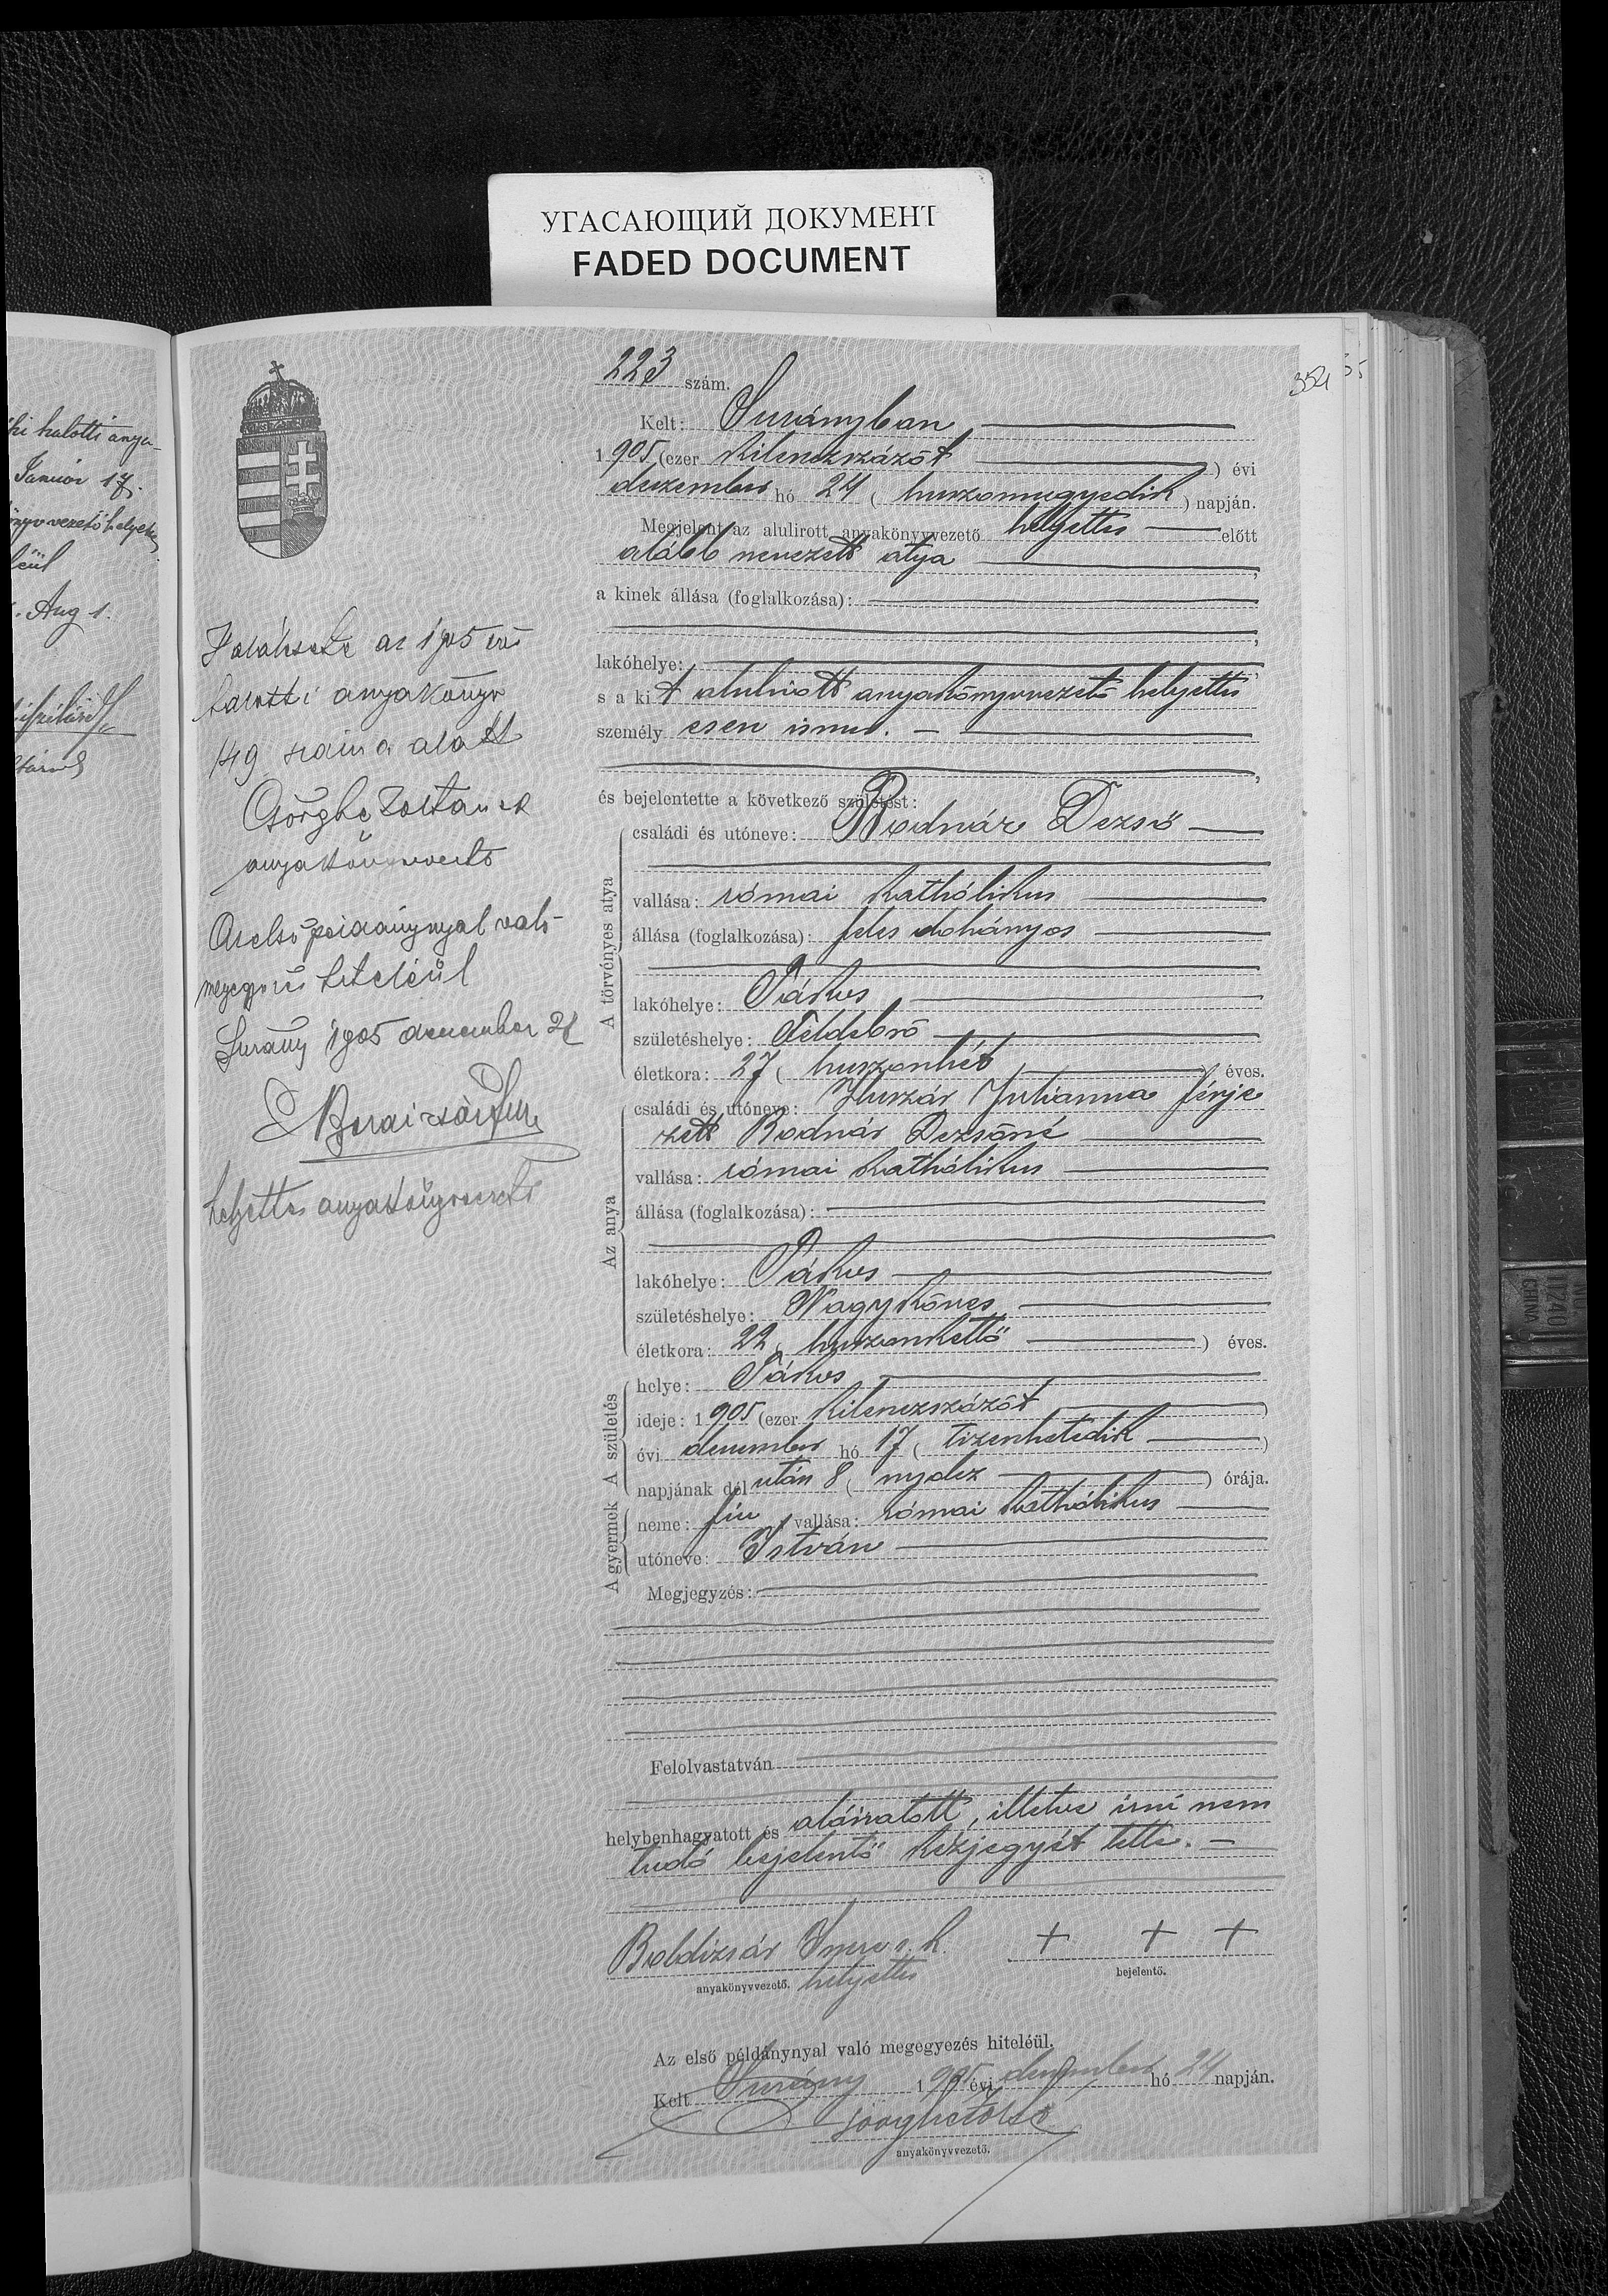 УГАСАЮЩИЙ ДОКУМЕНТ
FADED DOCUMENT
ki halotti anya-
Január 17.
Aug 1.
354
223 szám.
Kelt: Surányban
1905 (ezer kilenczszázöt) évi
deczember hó 24 (huszonnegyedik) napján.
Megjelent az alulirott anyakönyvvezető helyettes előtt
alább nevezett atya
a kinek állása (foglalkozása):
lakóhelye:
s a kit alulirott anyakönyvvezető helyettes
személyesen ismer.
és bejelentette a következő születést:
A törvényes atya
családi és utóneve: Bodnár Dezső
vallása: római katholikus
állása (foglalkozása): feles dohányos
lakóhelye: Tákos
születéshelye: Feldebrő
életkora: 27 (huszonhét) éves.
Az anya
családi és utóneve: Huszár Julianna férje
zett Bodnár Dezsőné
vallása: római katholikus
állása (foglalkozása):
lakóhelye: Tákos
születéshelye: Nagyköves
életkora: 22 (huszonkettő) éves.
A születés
helye: Tákos
ideje: 1905 (ezer kilenczszázöt)
évi deczember hó 17 (tizenhetedik)
napjának dél után 8 (nyolcz) órája.
A gyermek
neme: fiu, vallása: római katholikus
utóneve: István
Megjegyzés:
Felolvastatván
helybenhagyatott és aláiratott, illetve irni nem
tudó bejelentő kézjegyét tette.
Boldizsár Imre s. k. + + +
anyakönyvvezető. helyettes bejelentő.
Az első példánynyal való megegyezés hiteléül.
Kelt Surány 1905 évi deczember hó 24 napján.
anyakönyvvezető.
Haláleset az 1905 évi
halotti anyakönyv
149 száma alatt
Csörghe Zoltán s k
anyakönyvvezető
Az első példánynyal való
megegyezés hiteléül
Surány 1905 december 24
helyettes anyakönyvvezető